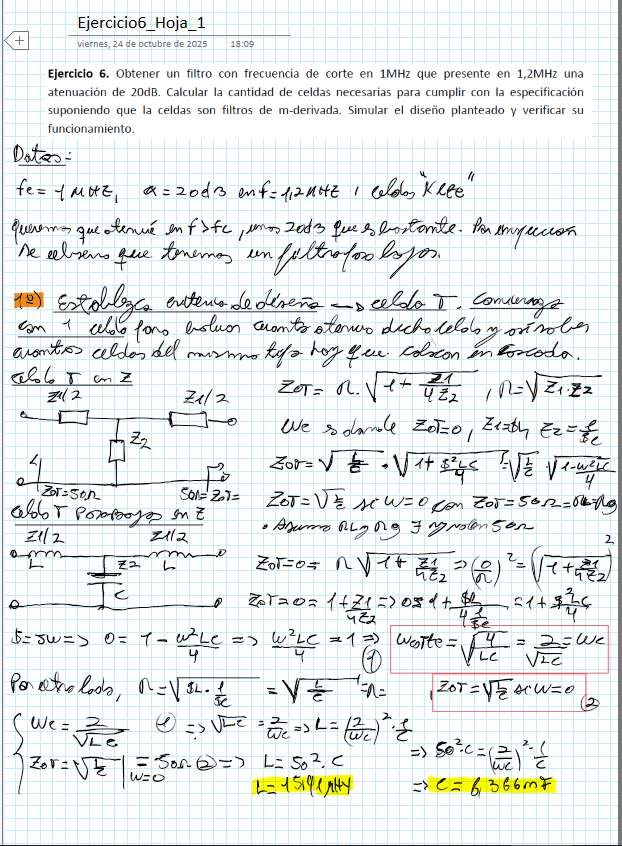 Ejercicio6_Hoja_1
viernes, 24 de octubre de 2025 18:09
Ejercicio 6. Obtener un filtro con frecuencia de corte en 1MHz que presente en 1,2MHz una
atenuación de 20dB. Calcular la cantidad de celdas necesarias para cumplir con la especificación
suponiendo que la celdas son filtros de m-derivada. Simular el diseño planteado y verificar su
funcionamiento.
Datos:
fc = 1 MHZ, α = 20dB en f = 1,2MHZ, celdas "K cte"
Queremos que atenué en f>fc, unos 20dB que es bastante. Por
se observa que tenemos un filtro paso bajos.
1º) Establezco criterio de diseño => celda T. Comienzo
con 1 celda para evaluar cuanto atenua dicha celda y así saber
cuantas celdas del mismo tipo hay que colocar en cascada.
Celda T en Z
Z1/2 Z1/2
Z2
ZoT=50Ω 50Ω=ZoT=
ZoT = R·√(1+Z1/4Z2), R=√(Z1·Z2)
Wc es donde ZoT=0, Z1=SL, Z2=1/SC
ZoT=√(L/C)·√(1+S²LC/4)=√(L/C)√(1-W²LC/4)
ZoT=√(L/C) si W=0 con ZoT=50Ω=RL=Rg
• Asumo RL y Rg y valen 50Ω
Celda T Paso Bajos en Z
Z1/2 Z1/2
L Z2 L
C
ZoT=0= R√(1+Z1/4Z2) => (0/R)²=(√(1+Z1/4Z2))²
ZoT=0= 1+Z1/4Z2 => 0=1+SL/(4·1/SC)=1+S²LC/4
S=JW=> 0= 1-W²LC/4 => W²LC/4=1 => ① Wcorte=√(4/LC)=2/√LC=Wc
Por otro lado, R=√(SL·1/SC)=√(L/C)=R= , ZoT=√(L/C) si W=0 ②
Wc=2/√LC ① => √LC=2/Wc => L=(2/Wc)²·1/C
ZoT=√(L/C)|W=0 =50Ω ② => L=50²·C
=> 50²·C=(2/Wc)²·1/C
L=15,91 µHy
=> C=6,366nF